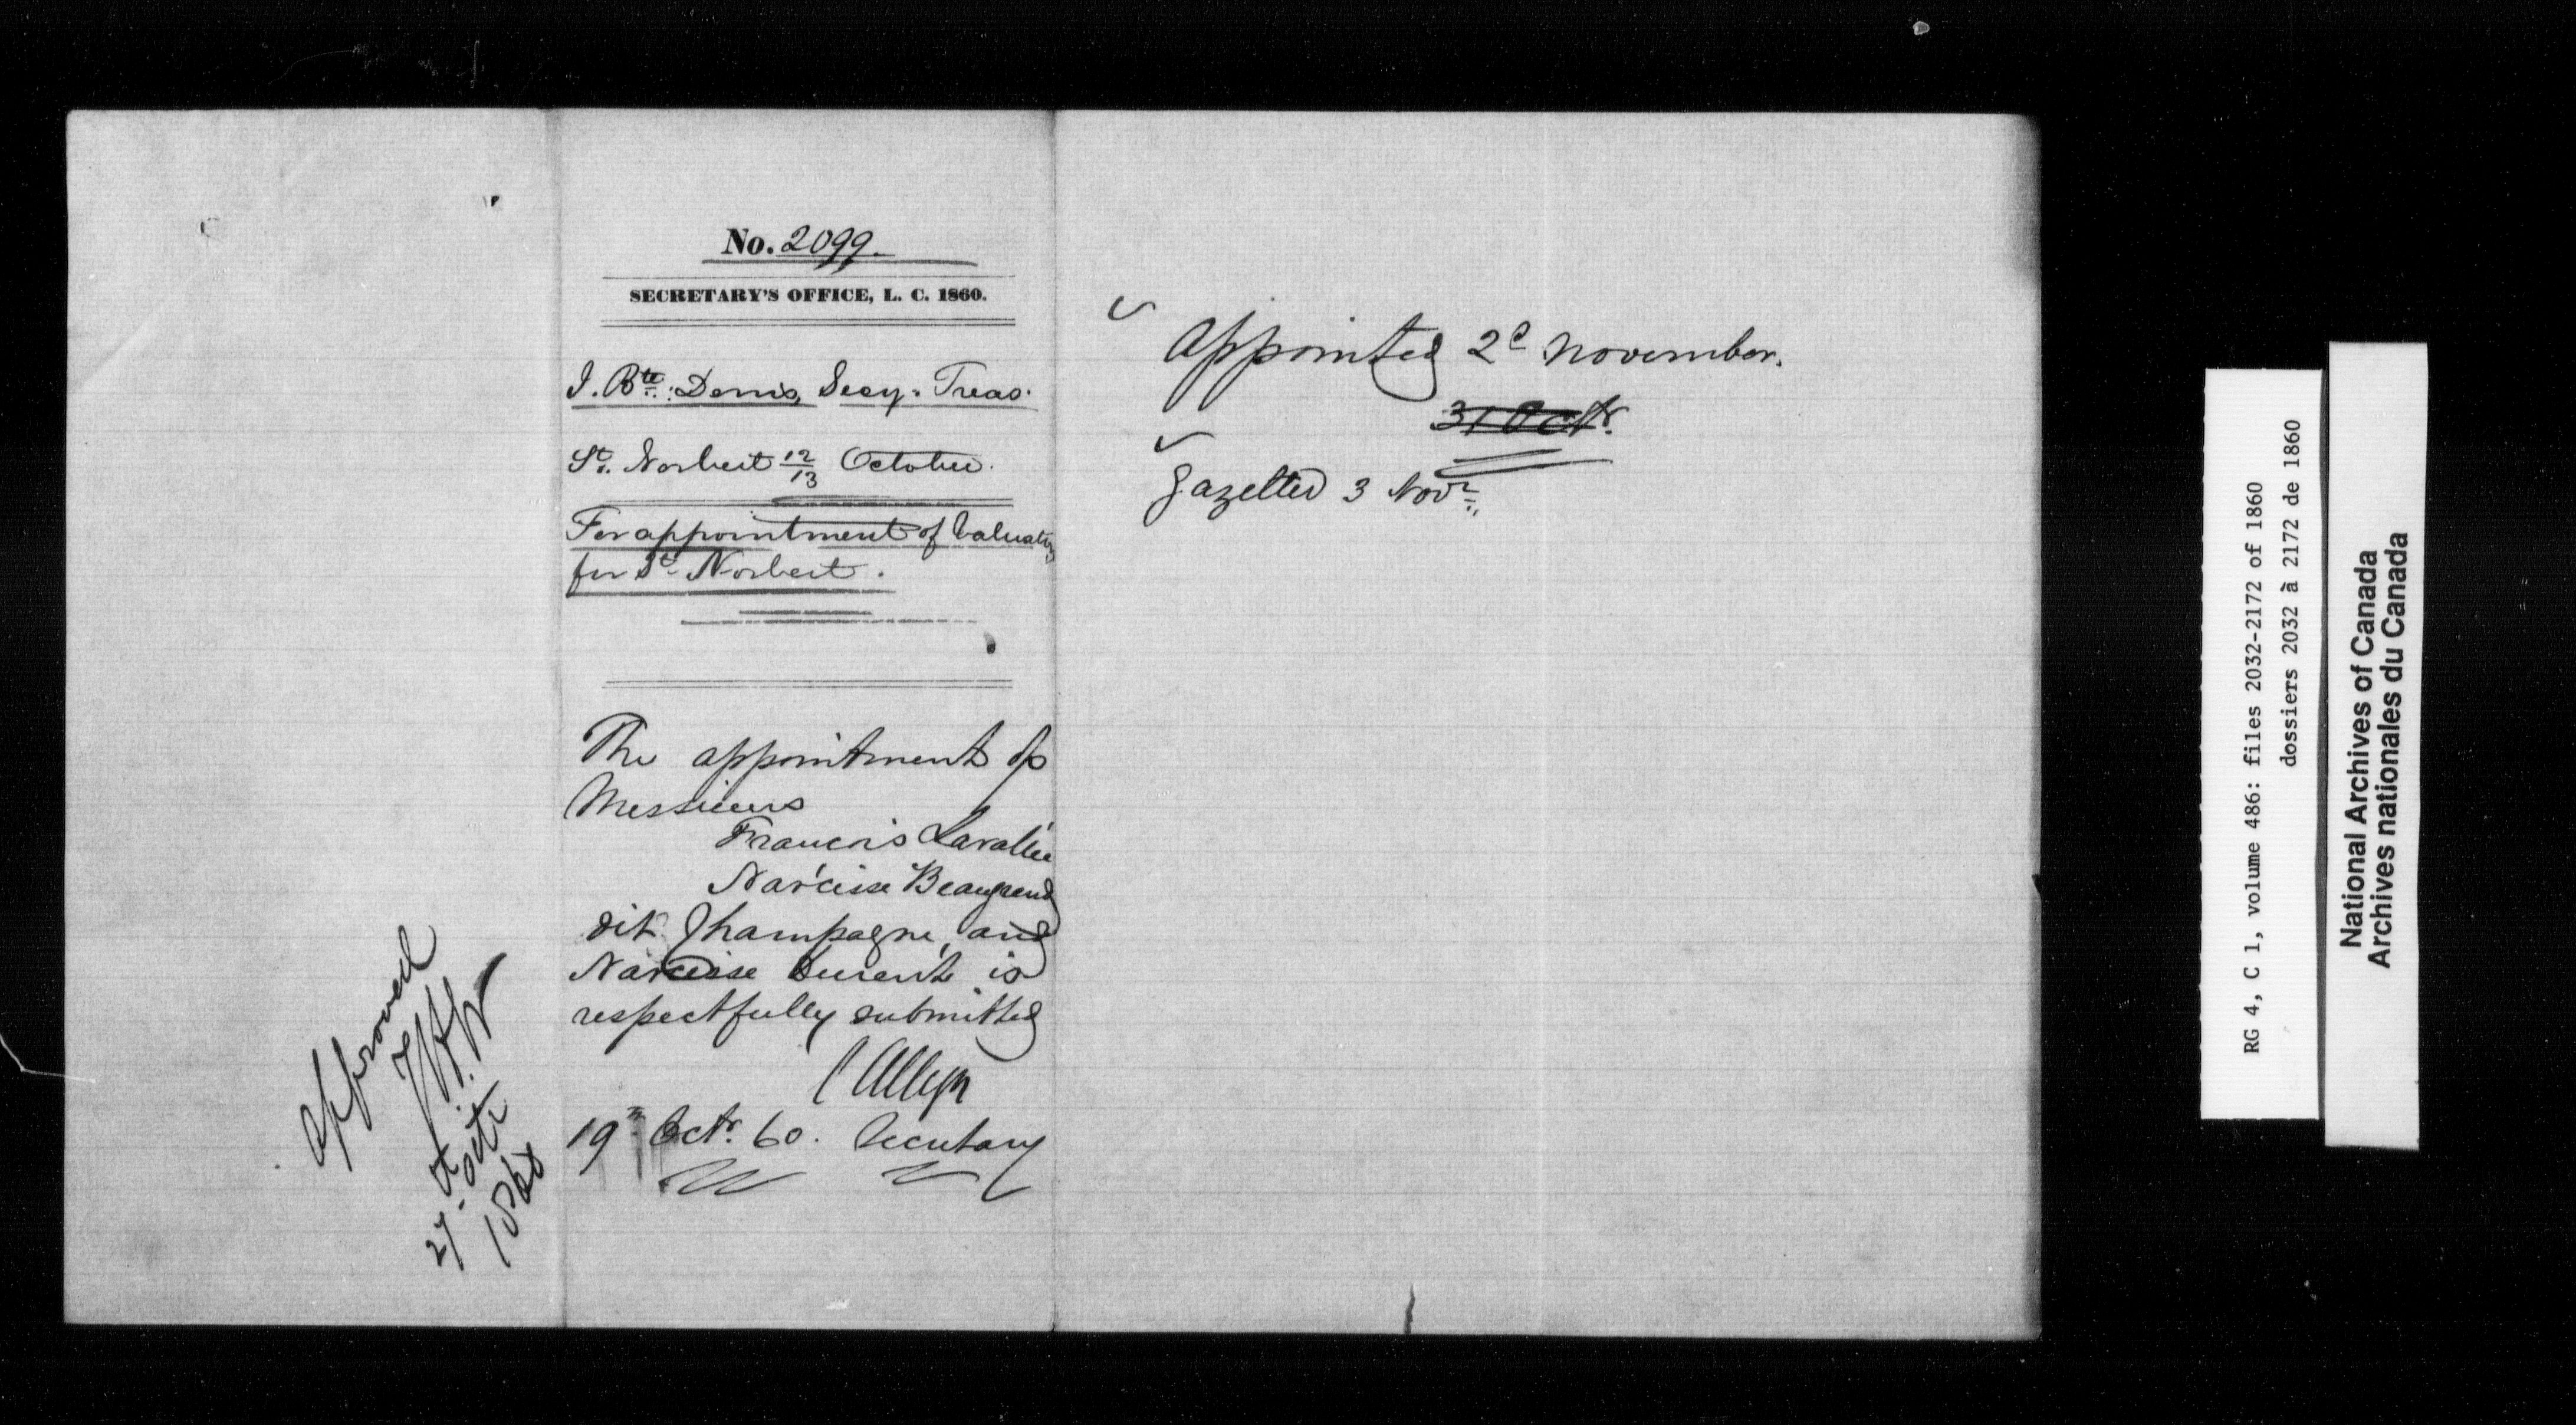 No. 2099.
SECRETARY'S OFFICE, L. C. 1860.
J. Bte: Denis, Secy. Treas.
St. Norbert 12/13 October.
For appointment of Valuators
for St. Norbert.
The appointment of
Messieurs
Francois Lavallée
Narcisse Beaugrand
dit Champagne, and
Narcisse is
respectfully submitted
C Alleyn
19th Octr. 60. Secretary
Approved
27 Octr
1860
Appointed 2d November.
31 Octr.
Gazetted 3 Novr.
RG 4, C 1, volume 486: files 2032-2172 of 1860
dossiers 2032 à 2172 de 1860
National Archives of Canada
Archives nationales du Canada